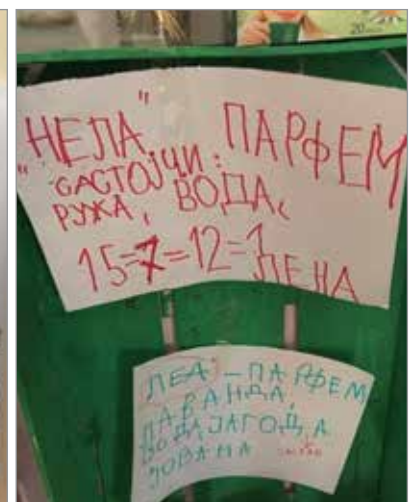 20
„НЕЛА" ПАРФЕМ
САСТОЈЧИ:
РУЖА, ВОДА,
15=7=12=1
ЛЕНА
ЛЕА - ПАРФЕМ
ЛАВАНДА,
ВОДА ЈАГОДА
ЈОВАНА